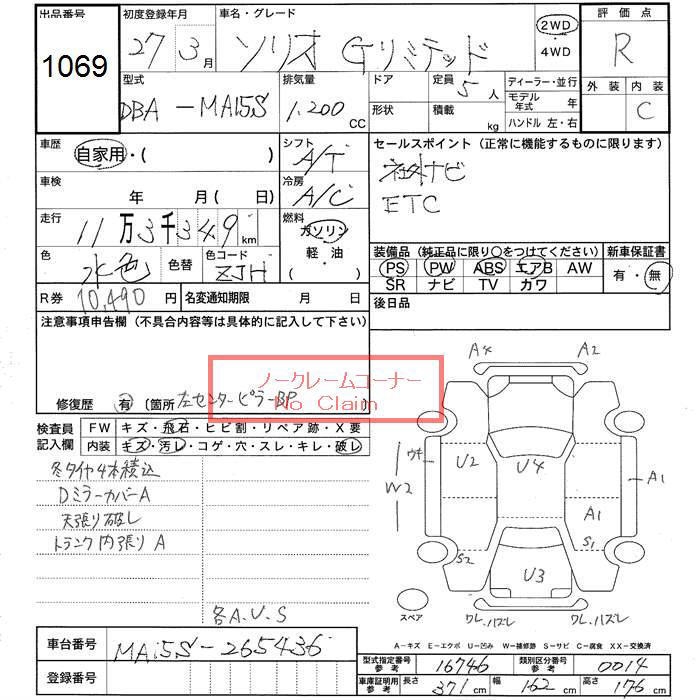 出品番号 初度登録年月 車名・グレード 評価点
1069 27年3月 ソリオ Gリミテッド 2WD ・4WD R
型式 排気量 ドア 定員 5人 ディーラー・並行 外装 内装
DBA-MA15S 1,200cc 形状 積載 kg モデル年式 年 ハンドル 左・右 C
車歴 自家用・( ) シフト A/T セールスポイント(正常に機能するものに限ります)
車検 年 月( 日) 冷房 A/C 社外ナビ
ETC
走行 11万3千349km 燃料 ガソリン・軽油・( )
色 水色 色替 色コード ZJH
装備品(純正品に限り○をつけてください) 新車保証書
PS PW ABS エアB AW 有・無
SR ナビ TV カワ
R券 10,490円 名変通知期限 月 日 後日品
注意事項申告欄(不具合内容等は具体的に記入して下さい)
ノークレームコーナー
No Claim
修復歴 有〔箇所 左センターピラーBP
検査員記入欄 FW キズ・飛石・ヒビ割・リペア跡・X要
内装 キズ・汚レ・コゲ・穴・スレ・キレ・破レ
冬タイヤ4本積込
DミラーカバーA
天張り破レ
トランク内張りA
各A.U.S
A4 A2
W2 U2 U4 A1
A1
S2 S1
U3
スペア ワレ.ハズレ ワレ.ハズレ
A-キズ E-エクボ U-凹み W-補修跡 S-サビ C-腐食 XX-交換済
車台番号 MA15S-265436
登録番号
型式指定番号参考 16746 類別区分番号参考 0014
車庫証明用参考 長さ 371cm 幅 162cm 高さ 176cm